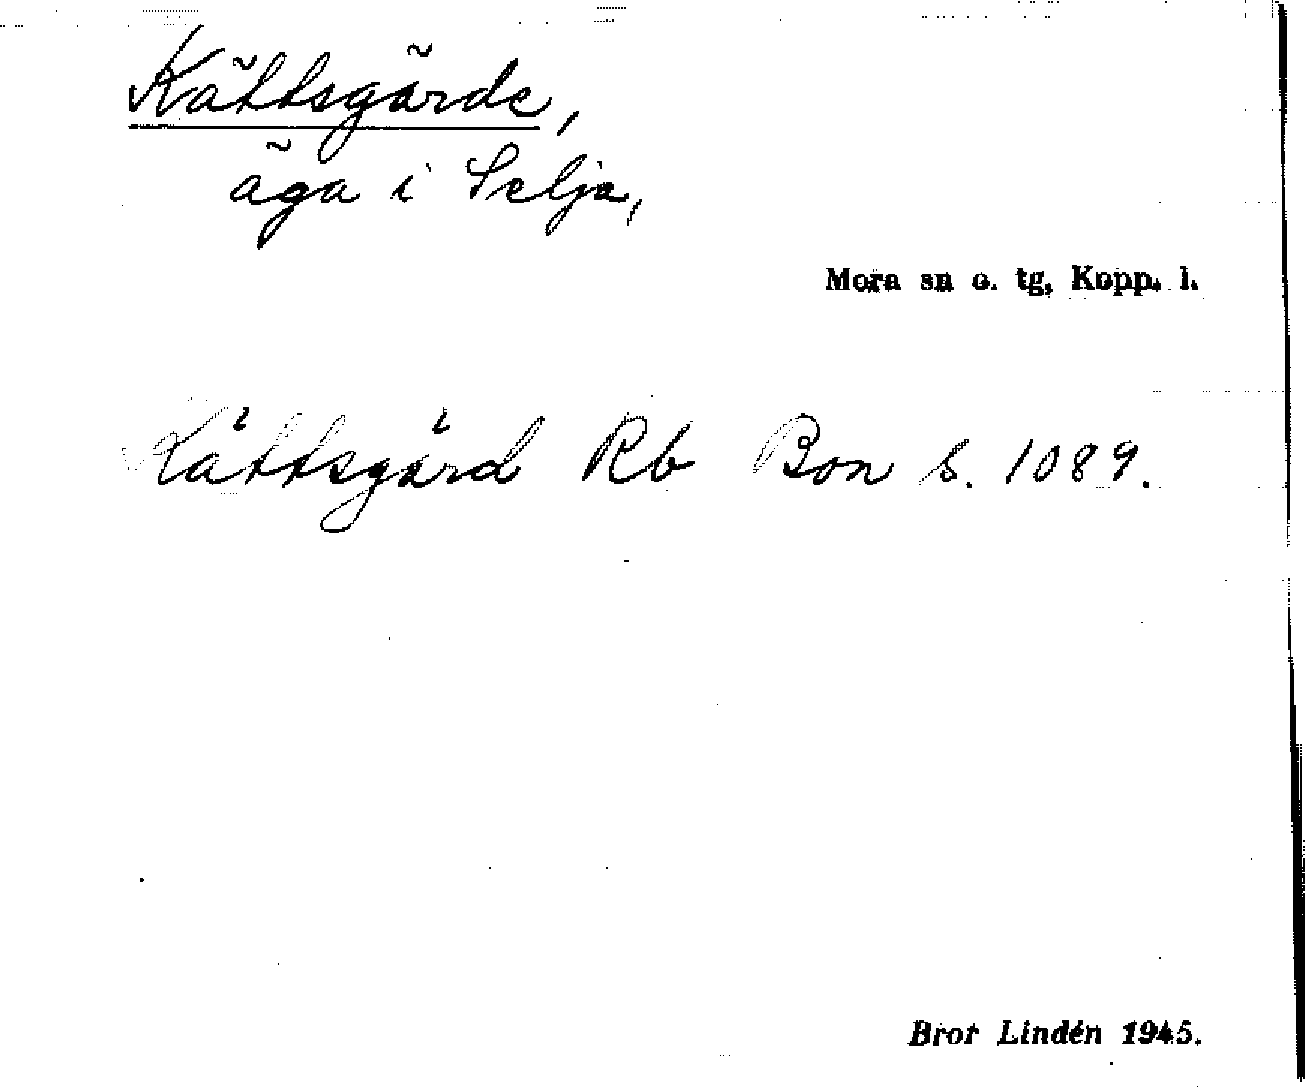 Kättsgärde,
äga i Selja,
Mora sn o. tg, Kopp. l.
Kättsgärd Rb Bon s. 1089.
Bror Lindén 1945.